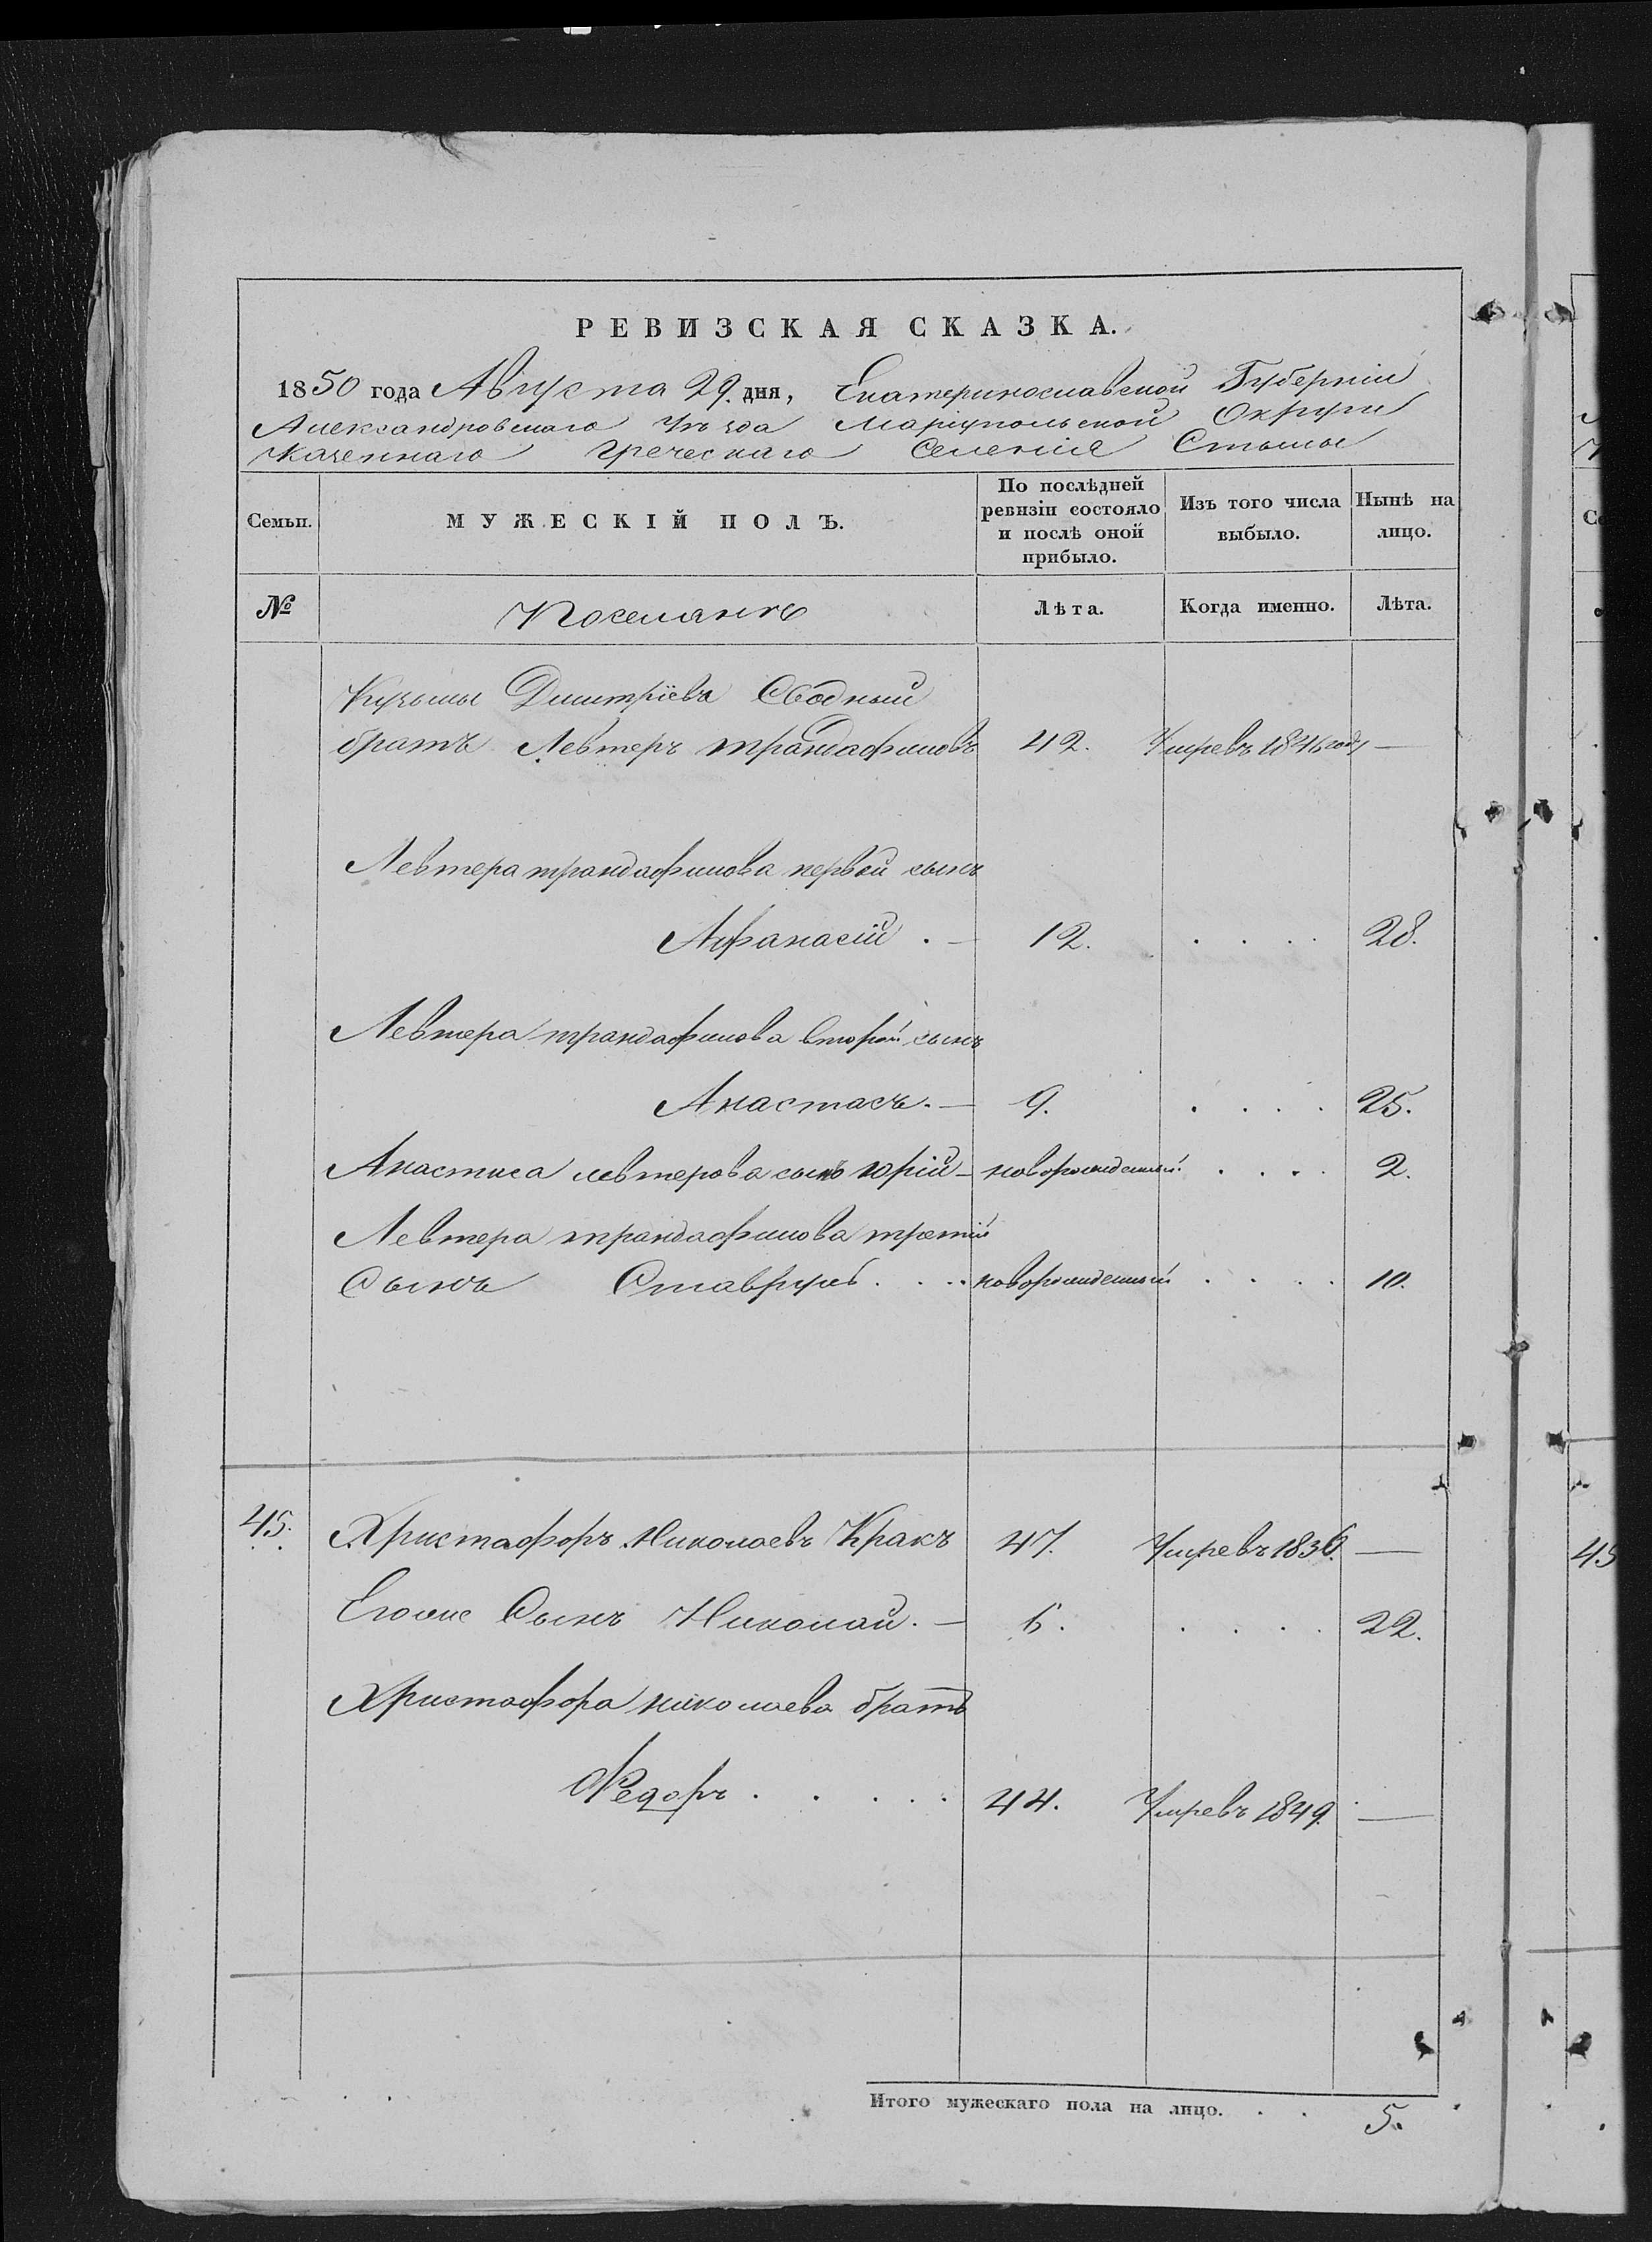 РЕВИЗСКАЯ СКАЗКА.
1850 года Августа 29. дня, Екатеринославской Губерніи
Александровскаго Уѣзда Маріупольской Округи
Казеннаго Греческаго Селенія Стылы
Семьи. МУЖЕСКІЙ ПОЛЪ. По послѣдней ревизіи состояло и послѣ оной прибыло. Изъ того числа выбыло. Нынѣ на лицо.
№ Поселянъ Лѣта. Когда именно. Лѣта.
Кузьмы Дмитріева Сводный
братъ Левтеръ трандафиловъ 42. Умревъ 1846 году —
Левтера трандафилова первой сынъ
Афанасій . — 12. . . . . 28.
Левтера трандафилова второй сынъ
Анастасъ. — 9. . . . . 25.
Анастаса левтерова сынъ юрій — новорожденный . . . . 2.
Левтера трандафилова третій
Сынъ . . . новорожденный . . . . 10.
45. Христофоръ Николаевъ Кракъ 47. Умревъ 1836. —
Егоже Сынъ Николай. — 6. . . . . 22.
Христофора николаева братъ
Федоръ . . . . . 44. Умревъ 1849. —
Итого мужескаго пола на лицо. . . 5.
45